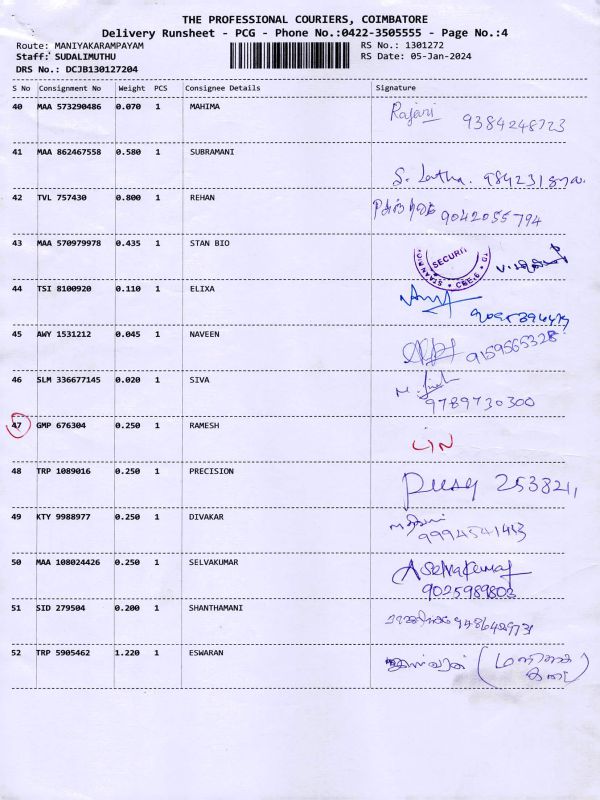 THE PROFESSIONAL COURIERS, COIMBATORE
Delivery Runsheet - PCG - Phone No.:0422-3505555 - Page No.:4
Route: MANIYAKARAMPAYAM RS No.: 1301272
Staff: SUDALIMUTHU RS Date: 05-Jan-2024
DRS No.: DCJB130127204
S No Consignment No Weight PCS Consignee Details Signature
40 MAA 573290486 0.070 1 MAHIMA Rajani 9384248723
41 MAA 862467558 0.580 1 SUBRAMANI S. Latha.
42 TVL 757430 0.800 1 REHAN 9042055794
43 MAA 570979978 0.435 1 STAN BIO SECURIT
44 TSI 8100920 0.110 1 ELIXA
45 AWY 1531212 0.045 1 NAVEEN 9159565328
46 SLM 336677145 0.020 1 SIVA 9789730300
47 GMP 676304 0.250 1 RAMESH
48 TRP 1089016 0.250 1 PRECISION
49 KTY 9988977 0.250 1 DIVAKAR
50 MAA 108024426 0.250 1 SELVAKUMAR A Selvakumar
9025989803
51 SID 279504 0.200 1 SHANTHAMANI
52 TRP 5905462 1.220 1 ESWARAN